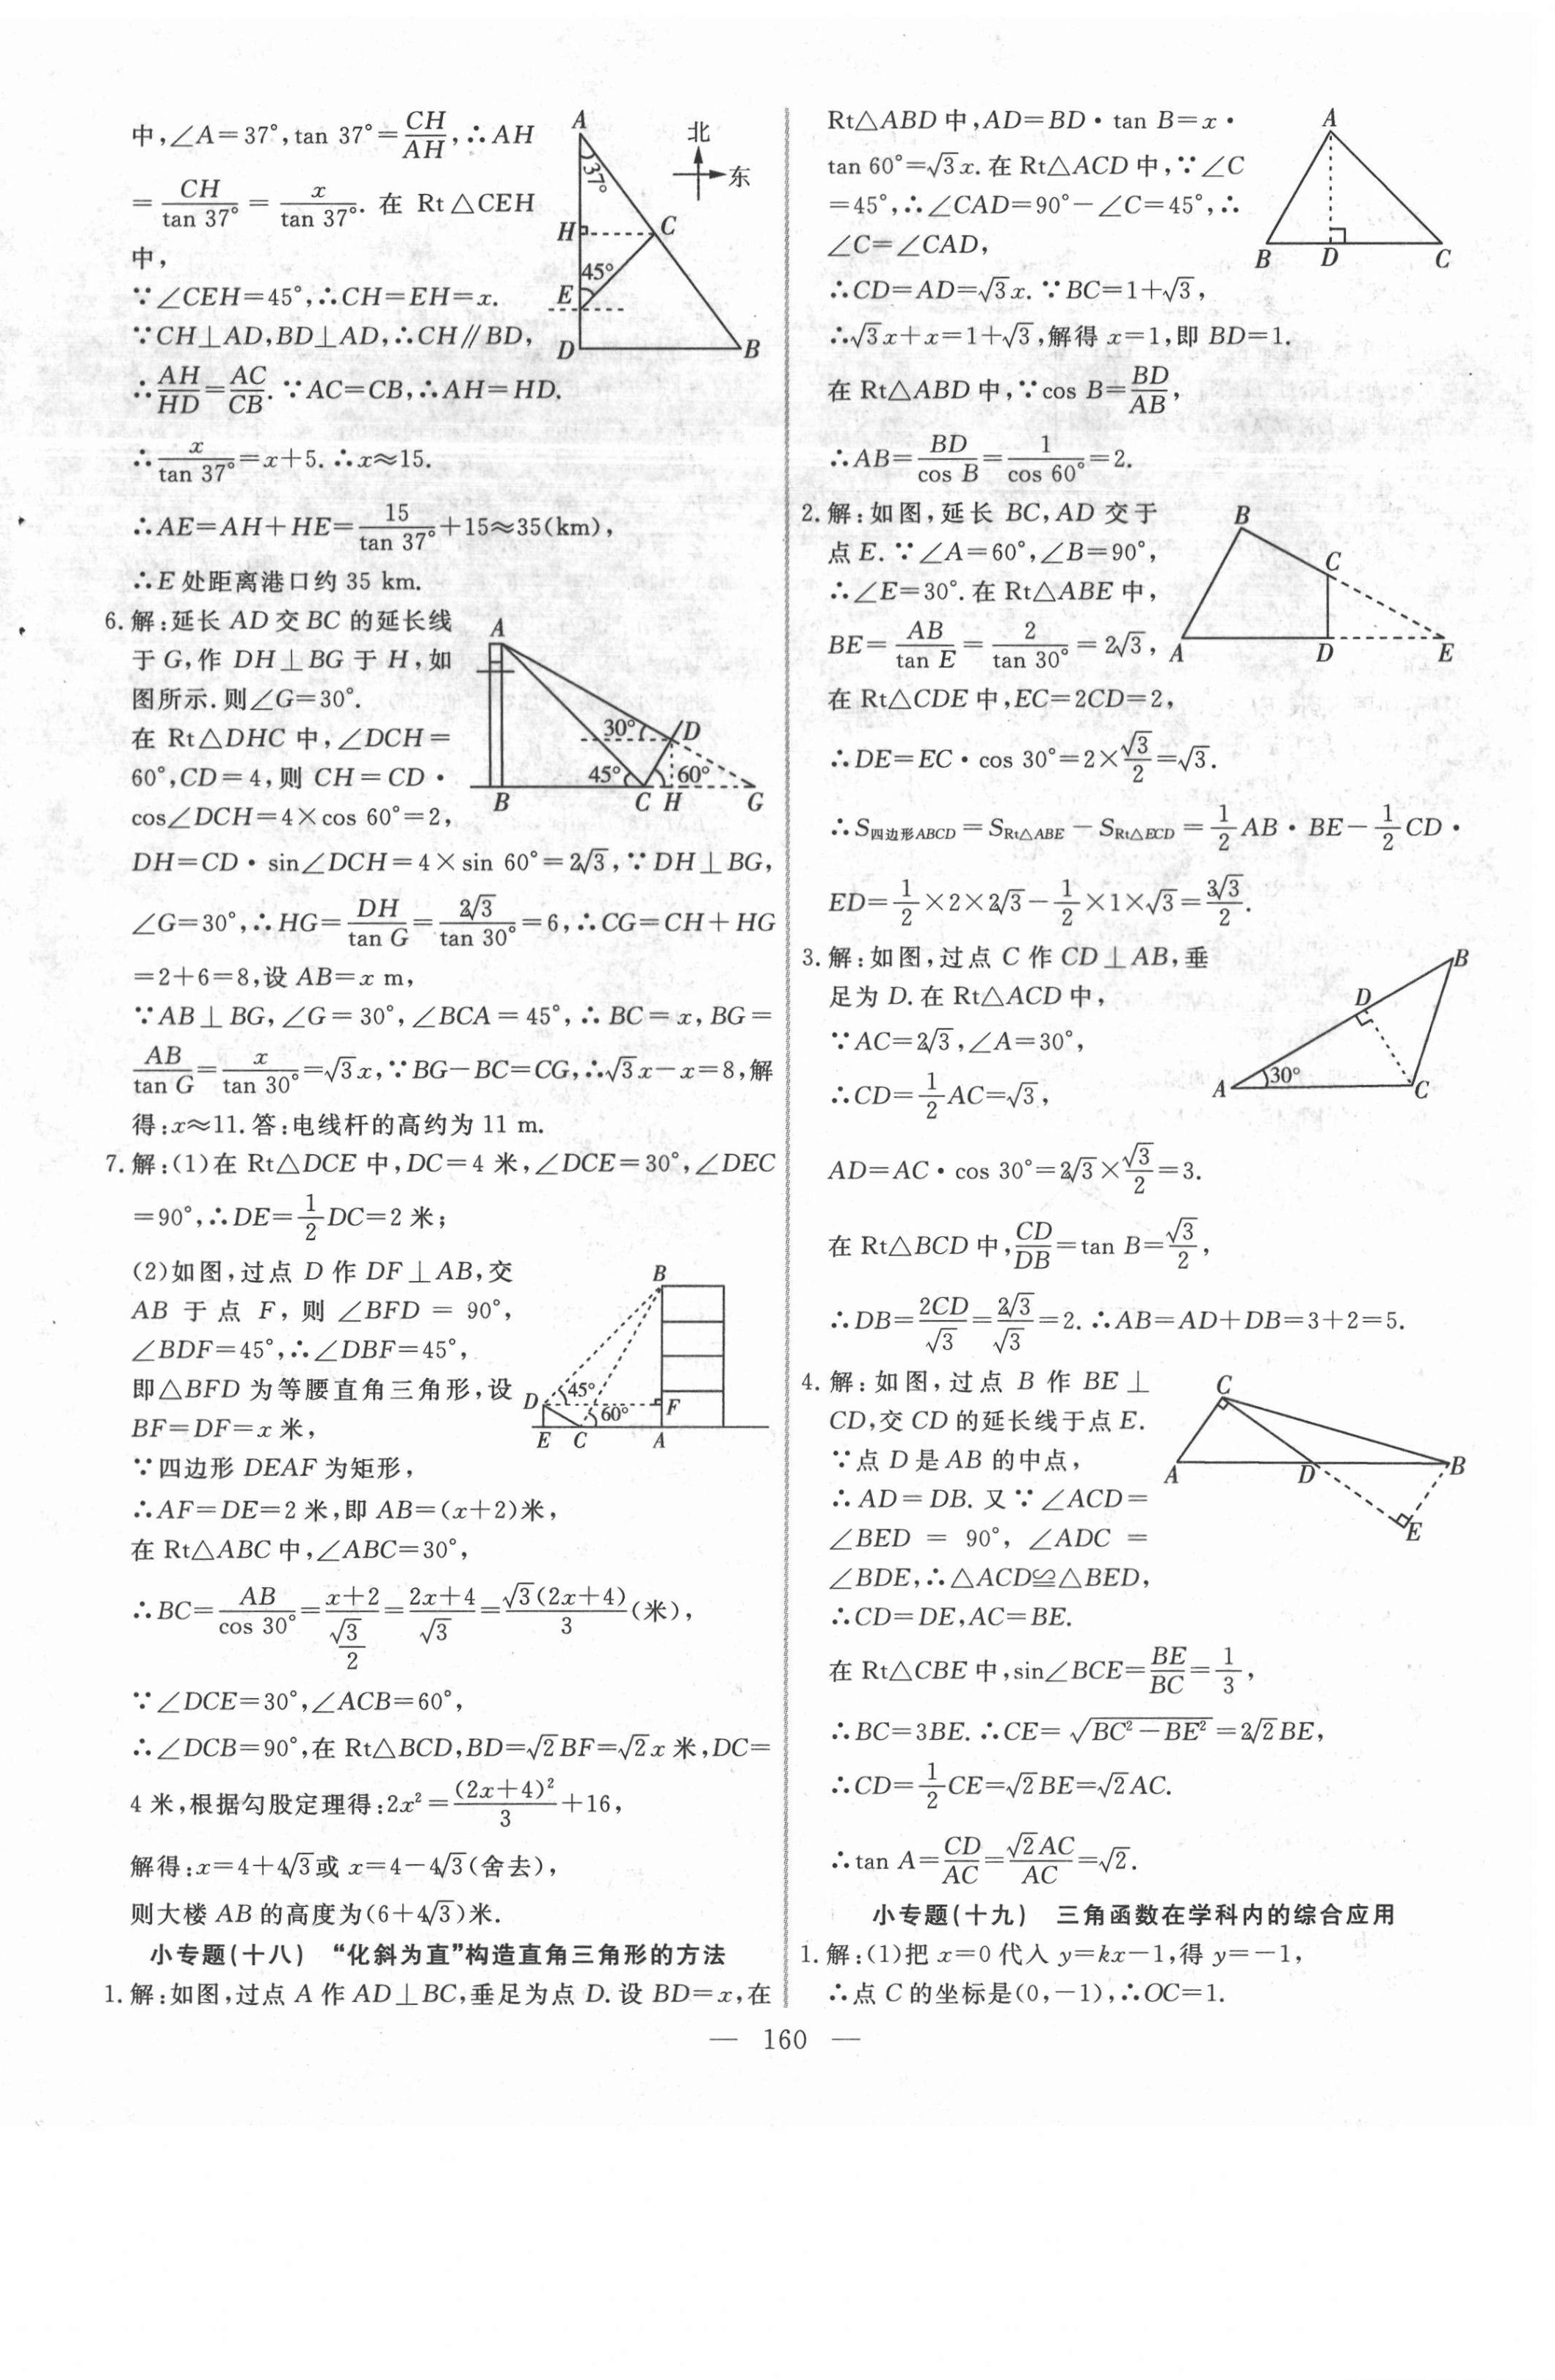 中,∠A=37°,tan 37°=CH/AH,∴AH
=CH/tan 37°=x/tan 37°.在 Rt△CEH
中,
∵∠CEH=45°,∴CH=EH=x.
∵CH⊥AD,BD⊥AD,∴CH∥BD,
∴AH/HD=AC/CB.∵AC=CB,∴AH=HD.
∴x/tan 37°=x+5.∴x≈15.
∴AE=AH+HE=15/tan 37°+15≈35(km),
∴E 处距离港口约 35 km.
A
北
东
37°
H
C
45°
E
D
B
6.解:延长 AD 交 BC 的延长线
于 G,作 DH⊥BG 于 H,如
图所示.则∠G=30°.
在 Rt△DHC 中,∠DCH=
60°,CD=4,则 CH=CD·
cos∠DCH=4×cos 60°=2,
DH=CD·sin∠DCH=4×sin 60°=2√3,∵DH⊥BG,
∠G=30°,∴HG=DH/tan G=2√3/tan 30°=6,∴CG=CH+HG
=2+6=8,设 AB=x m,
∵AB⊥BG,∠G=30°,∠BCA=45°,∴BC=x,BG=
AB/tan G=x/tan 30°=√3x,∵BG−BC=CG,∴√3x−x=8,解
得:x≈11.答:电线杆的高约为 11 m.
A
30°
D
45°
60°
B
C
H
G
7.解:(1)在 Rt△DCE 中,DC=4 米,∠DCE=30°,∠DEC
=90°,∴DE=1/2DC=2 米;
(2)如图,过点 D 作 DF⊥AB,交
AB 于点 F,则 ∠BFD = 90°,
∠BDF=45°,∴∠DBF=45°,
即△BFD 为等腰直角三角形,设
BF=DF=x 米,
∵四边形 DEAF 为矩形,
∴AF=DE=2 米,即 AB=(x+2)米,
在 Rt△ABC 中,∠ABC=30°,
∴BC=AB/cos 30°=(x+2)/(√3/2)=(2x+4)/√3=√3(2x+4)/3(米),
∵∠DCE=30°,∠ACB=60°,
∴∠DCB=90°,在 Rt△BCD,BD=√2BF=√2x 米,DC=
4 米,根据勾股定理得:2x²=(2x+4)²/3+16,
解得:x=4+4√3或 x=4−4√3(舍去),
则大楼 AB 的高度为(6+4√3)米.
B
D
45°
F
60°
E
C
A
小专题(十八) “化斜为直”构造直角三角形的方法
1.解:如图,过点 A 作 AD⊥BC,垂足为点 D.设 BD=x,在
Rt△ABD 中,AD=BD·tan B=x·
tan 60°=√3x.在 Rt△ACD 中,∵∠C
=45°,∴∠CAD=90°−∠C=45°,∴
∠C=∠CAD,
∴CD=AD=√3x.∵BC=1+√3,
∴√3x+x=1+√3,解得 x=1,即 BD=1.
在 Rt△ABD 中,∵cos B=BD/AB,
∴AB=BD/cos B=1/cos 60°=2.
A
B
D
C
2.解:如图,延长 BC,AD 交于
点 E.∵∠A=60°,∠B=90°,
∴∠E=30°.在 Rt△ABE 中,
BE=AB/tan E=2/tan 30°=2√3,
在 Rt△CDE 中,EC=2CD=2,
∴DE=EC·cos 30°=2×√3/2=√3.
∴S四边形ABCD=SRt△ABE−SRt△ECD=1/2AB·BE−1/2CD·
ED=1/2×2×2√3−1/2×1×√3=3√3/2.
B
C
A
D
E
3.解:如图,过点 C 作 CD⊥AB,垂
足为 D.在 Rt△ACD 中,
∵AC=2√3,∠A=30°,
∴CD=1/2AC=√3,
AD=AC·cos 30°=2√3×√3/2=3.
在 Rt△BCD 中,CD/DB=tan B=√3/2,
∴DB=2CD/√3=2√3/√3=2.∴AB=AD+DB=3+2=5.
B
D
30°
A
C
4.解:如图,过点 B 作 BE⊥
CD,交 CD 的延长线于点 E.
∵点 D 是 AB 的中点,
∴AD=DB.又∵∠ACD=
∠BED = 90°, ∠ADC =
∠BDE,∴△ACD≌△BED,
∴CD=DE,AC=BE.
在 Rt△CBE 中,sin∠BCE=BE/BC=1/3,
∴BC=3BE.∴CE=√(BC²−BE²)=2√2BE,
∴CD=1/2CE=√2BE=√2AC.
∴tan A=CD/AC=√2AC/AC=√2.
C
A
D
B
E
小专题(十九) 三角函数在学科内的综合应用
1.解:(1)把 x=0 代入 y=kx−1,得 y=−1,
∴点 C 的坐标是(0,−1),∴OC=1.
— 160 —